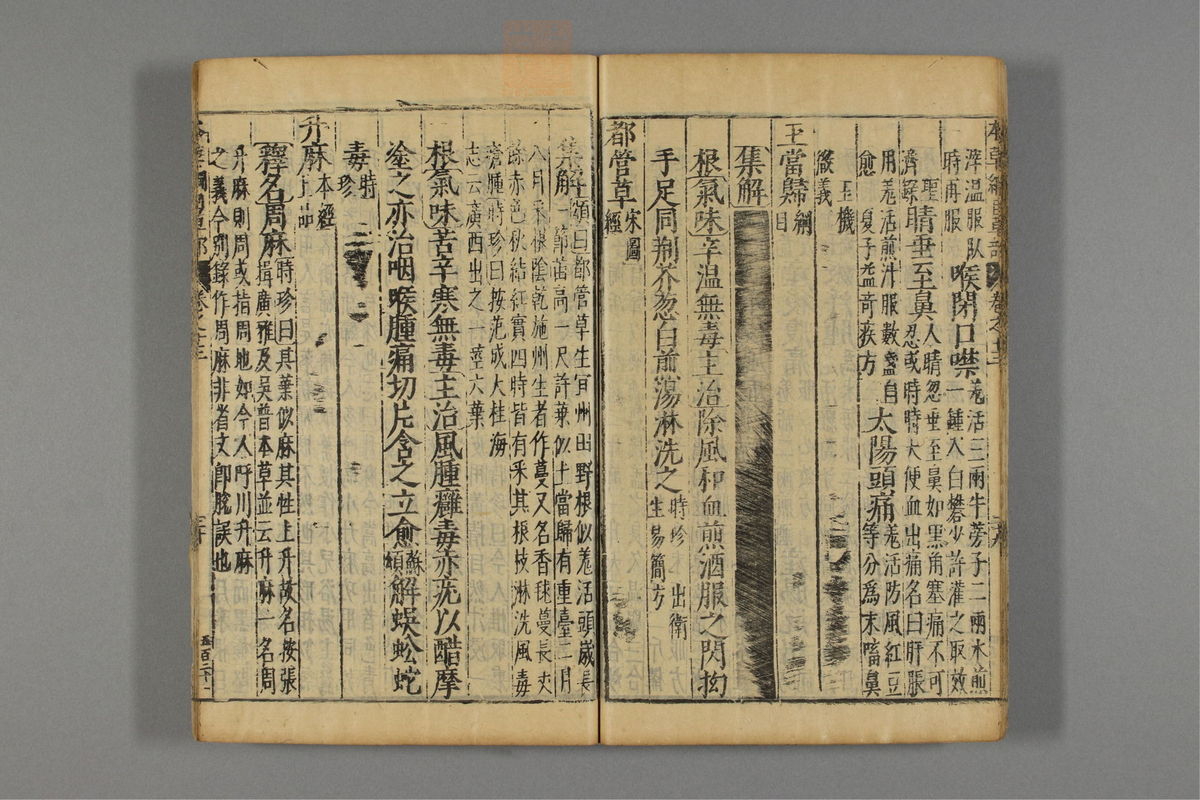 滓温服臥
時再服
喉閉口噤
羗活三兩牛蒡子二兩水煎
一鍾入白礬少許灌之取效
聖
濟錄
睛垂至鼻
人睛忽垂至鼻如黑角塞痛不可
忍或時時大便血出痛名曰肝脹
用羗活煎汁服數盞自
愈 夏子益竒疾方
太陽頭痛
羗活防風紅豆
等分爲末㗜鼻
玉機
微義
土當歸
綱
目
集解
根氣味辛温無毒主治除風和血煎酒服之閃拗
手足同荆芥葱白煎湯淋洗之
時珍 出衛
生易簡方
都管草
宋圖
經
集解
頌曰都管草生宜州田野根似羗活頭歲長
一節苗高一尺許葉似土當歸有重臺二月
八月采根陰乾施州生者作蔓又名香毬蔓長丈
餘赤色秋結紅實四時皆有采其根枝淋洗風毒
瘡腫時珍曰按范成大桂海
志云廣西出之一莖六葉
根氣味苦辛寒無毒主治風腫癰毒赤疣以醋摩
塗之亦治咽喉腫痛切片含之立愈
蘇
頌
解蜈蚣蛇
毒
時
珍
升麻
本經
上品
釋名周麻
時珍曰其葉似麻其性上升故名按張
揖廣雅及吳普本草並云升麻一名周
升麻則周或指周地如今人呼川升麻
之義今別錄作周麻非省文卽脫誤也